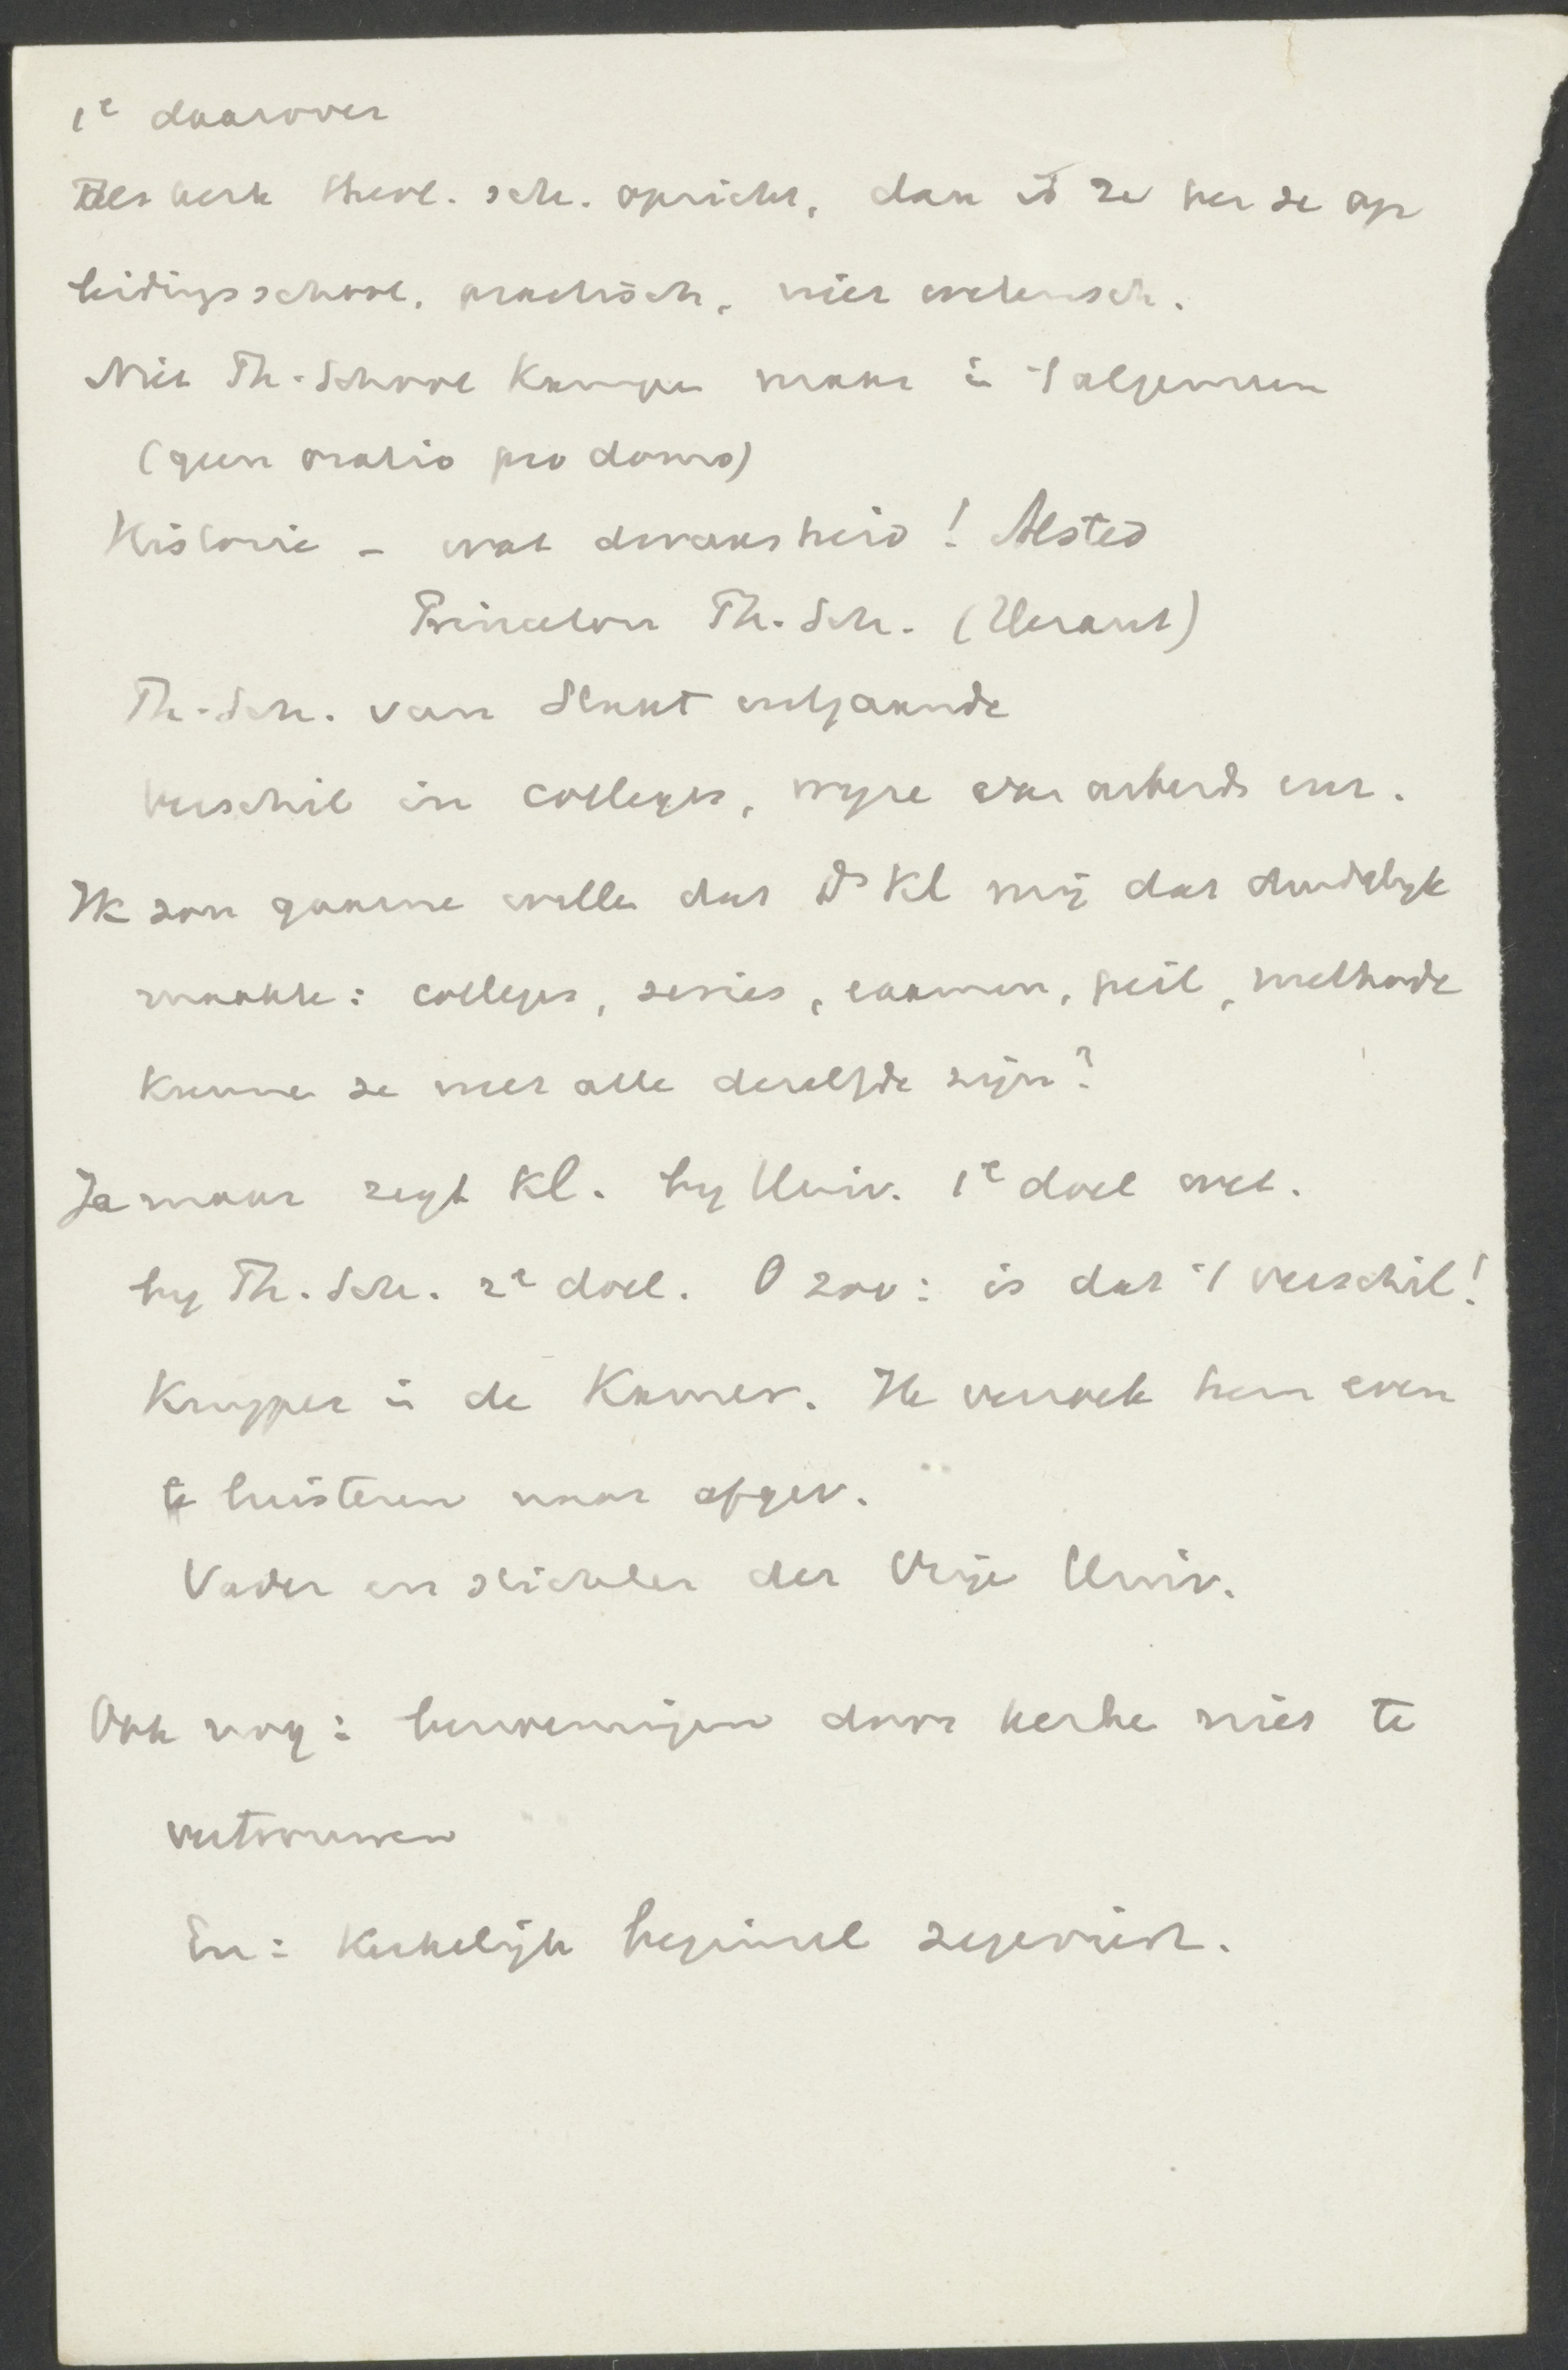 1e daarover
Als kerk theol. sch. opricht, dan is ze per se op
leidingsschool, practisch, niet wetensch.
Niet Th. School Kampen maar in 't algemeen
(geen oratio pro domo)
Historie – wat dwaasheid! Alsted
Princeton Th. Sch. (Heraut)
Th. Sch. van Staat uitgaande
verschil in colleges, wijze van arbeid enz.
Ik zou gaarne willen dat Ds Kl mij dat duidelijk
maakte: colleges, series, examen, peil, methode
kunnen ze niet alle dezelfde zijn?
Ja maar zegt Kl. by Univ. 1e doel wet.
by Th. Sch. 2e doel. O zoo: is dat 't verschil!
Kuyper in de Kamer. Ik verzoek hem even
te luisteren naar afgev.
Vader en stichter der Vrije Univ.
Ook nog: benoemingen door kerken niet te
vertrouwen
En: Kerkelijk beginsel zegeviert.